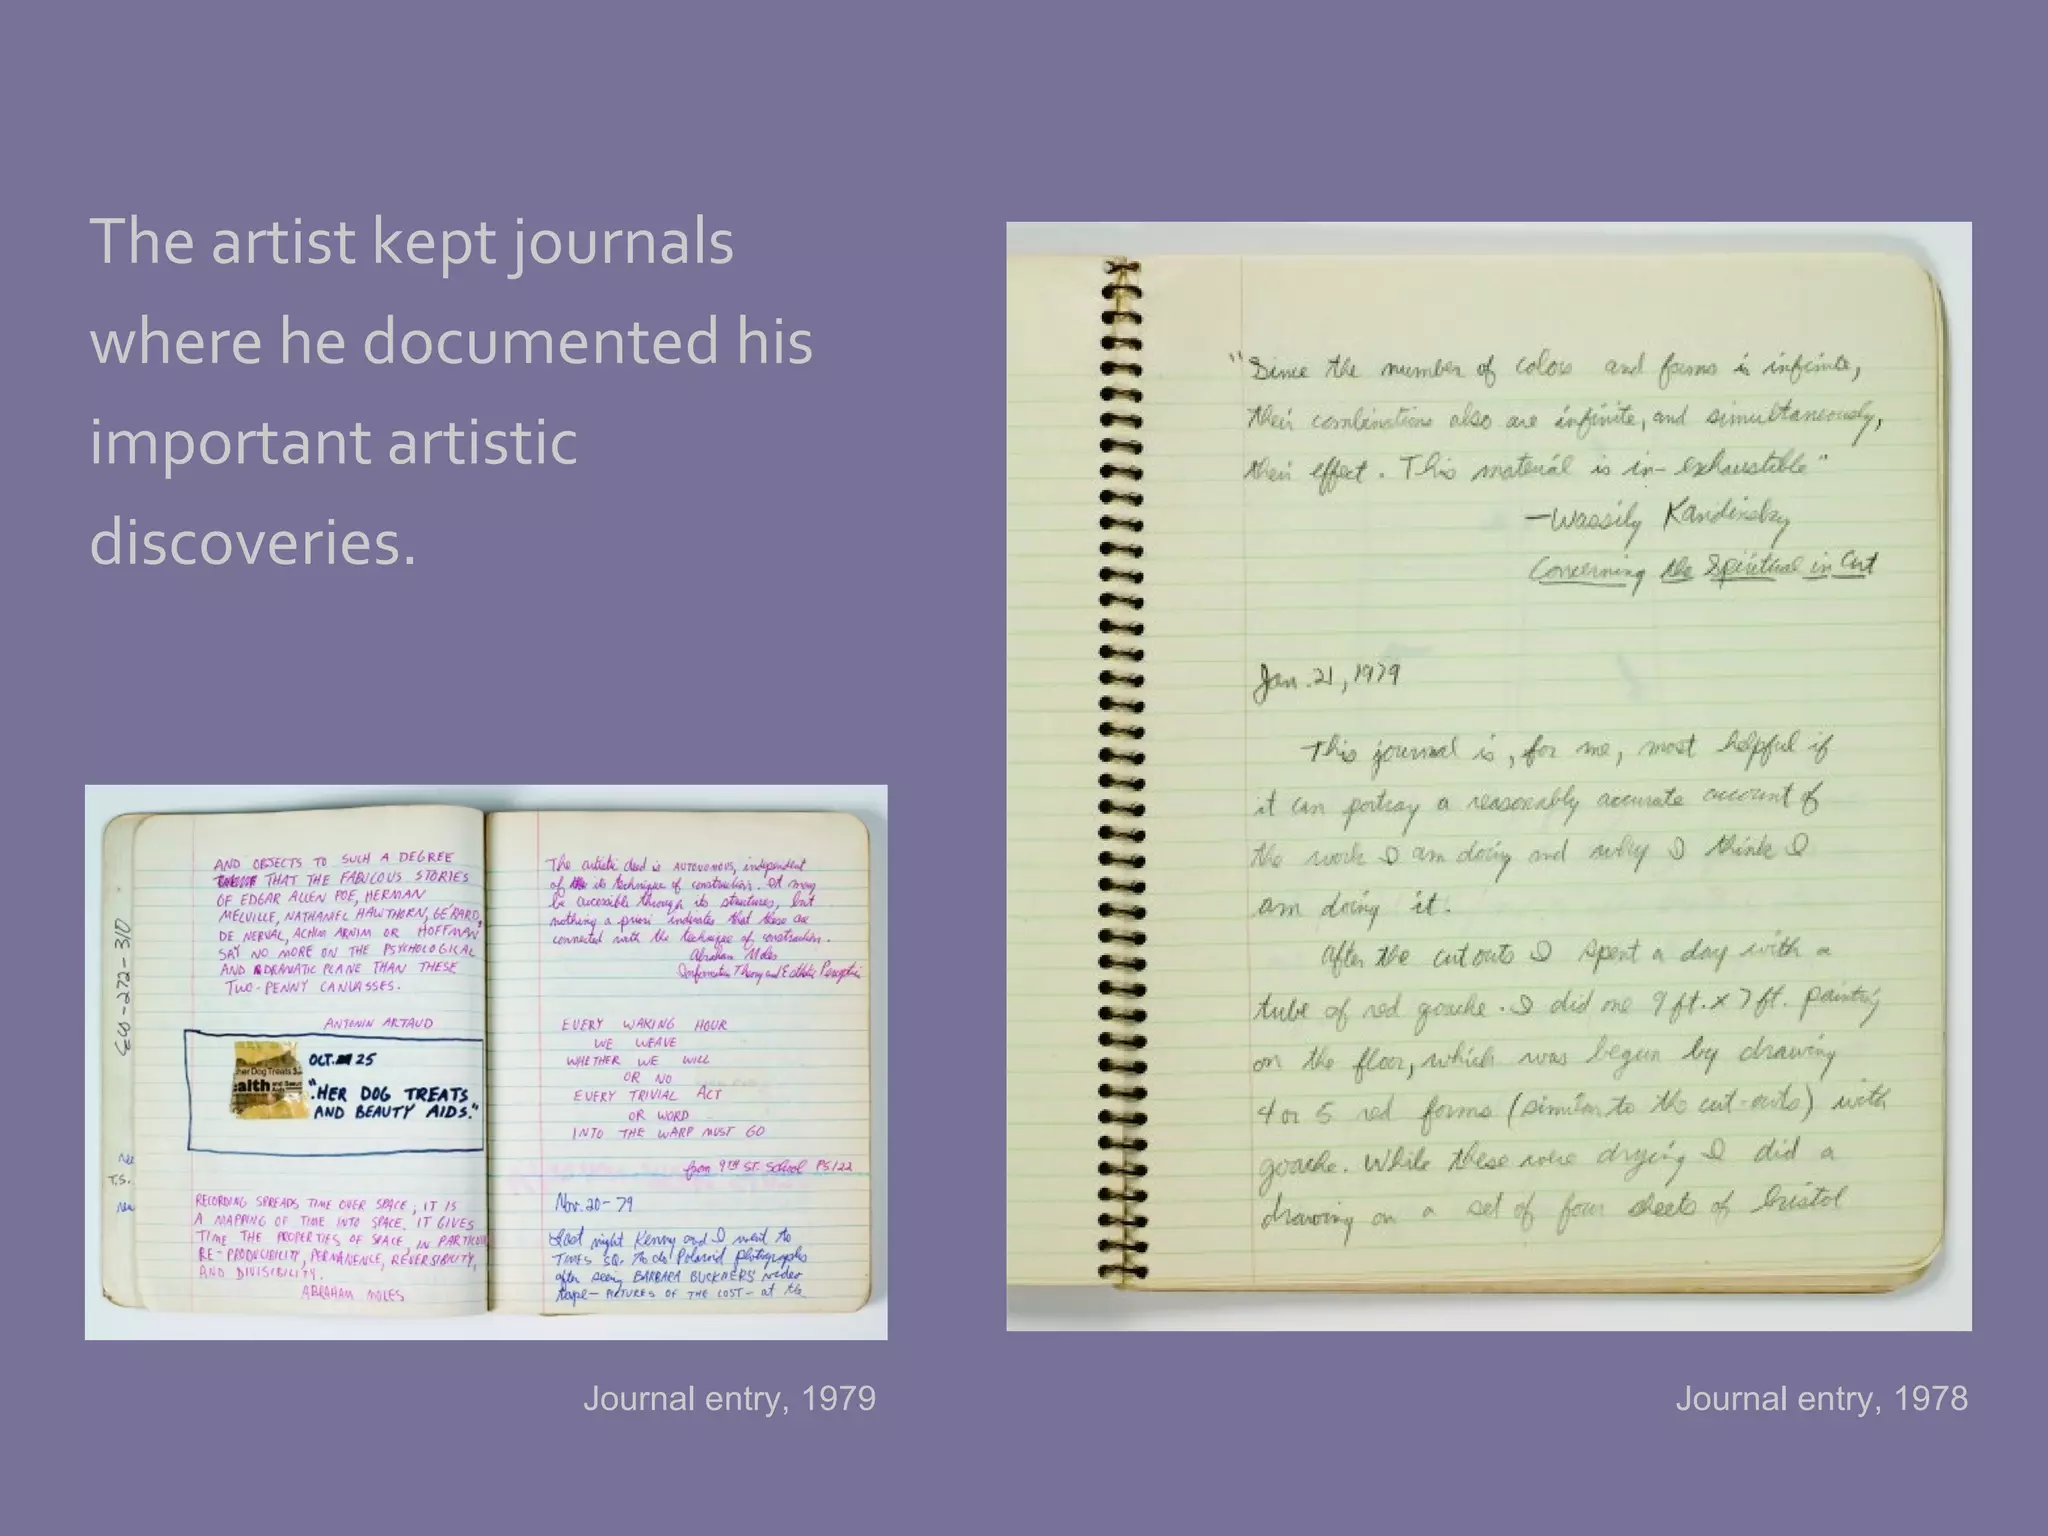 The artist kept journals
where he documented his
important artistic
discoveries.
AND OBJECTS TO SUCH A DEGREE
THAT THE FABULOUS STORIES
OF EDGAR ALLEN POE, HERMAN
MELVILLE, NATHANIEL HAWTHORN, GÉRARD,
DE NERVAL, ACHIM ARNIM OR HOFFMAN
SAY NO MORE ON THE PSYCHOLOGICAL
AND DRAMATIC PLANE THAN THESE
TWO-PENNY CANVASSES.
ANTONIN ARTAUD
her Dog Treats
alth and Beau
Aids
OCT. 25
"HER DOG TREATS
AND BEAUTY AIDS."
RECORDING SPREADS TIME OVER SPACE, IT IS
A MAPPING OF TIME INTO SPACE. IT GIVES
TIME THE PROPERTIES OF SPACE, IN PARTICULAR
RE-PRODUCIBILITY, PERMANENCE, REVERSIBILITY,
AND DIVISIBILITY.
ABRAHAM MOLES
T.S.
The artistic deed is AUTONOMOUS, independent
of its technique of construction. It may
be accessible through its structures, but
nothing a priori indicates that these are
connected with the technique of construction.
Abraham Moles
Information Theory and Esthetic Perception
EVERY WAKING HOUR
WE WEAVE
WHETHER WE WILL
OR NO
EVERY TRIVIAL ACT
OR WORD
INTO THE WARP MUST GO
from 9TH ST. School PS122
Nov. 20-79
Last night Kenny and I went to
TIMES SQ. to do Polaroid photographs
after seeing BARBARA BUCKNERS' video
tape— PICTURES OF THE LOST— at the
Journal entry, 1979
"Since the number of colors and forms is infinite,
their combinations also are infinite, and simultaneously,
their effect. This material is in-exhaustible"
—Wassily Kandinsky
Concerning the Spiritual in Art
Jan. 21, 1979
This journal is, for me, most helpful if
it can portray a reasonably accurate account of
the work I am doing and why I think I
am doing it.
After the cut outs I spent a day with a
tube of red goache. I did one 9 ft. x 7 ft. painting
on the floor, which was begun by drawing
4 or 5 red forms (similar to the cut-outs) with
goache. While these were drying I did a
drawing on a set of four sheets of bristol
Journal entry, 1978